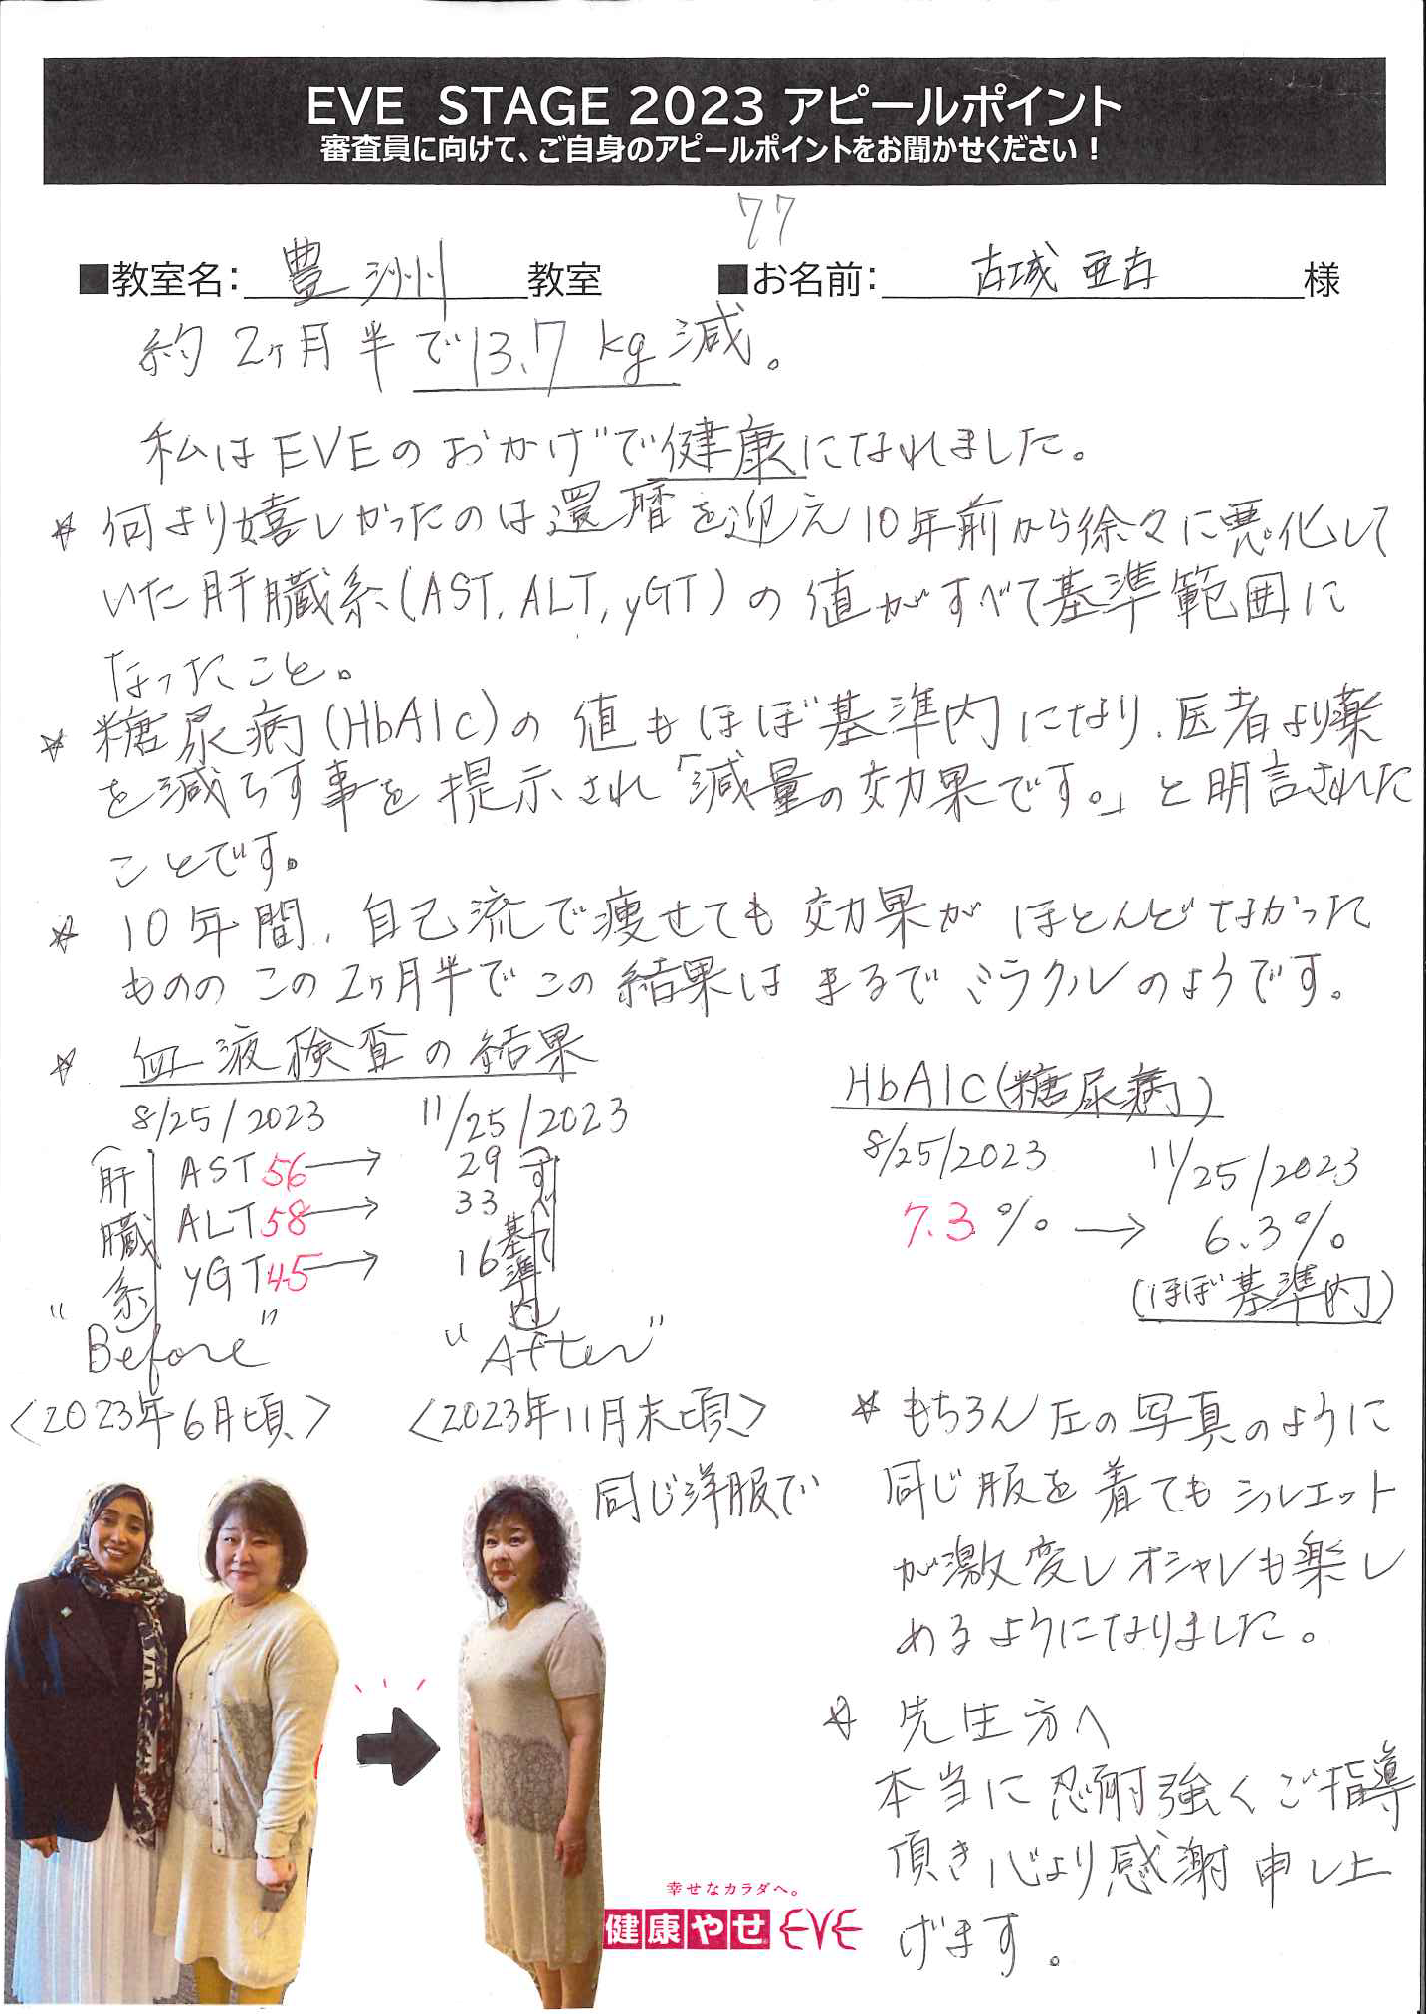 EVE STAGE 2023 アピールポイント
審査員に向けて、ご自身のアピールポイントをお聞かせください！
77
■教室名：豊洲教室 ■お名前：古城 亜古様
約2ヶ月半で13.7kg減。
私はEVEのおかげで健康になれました。
☆ 何より嬉しかったのは還暦を迎え10年前から徐々に悪化して
いた肝臓系(AST,ALT,γGT)の値がすべて基準範囲に
なったこと。
☆ 糖尿病(HbA1c)の値もほぼ基準内になり、医者より薬
を減らす事を提示され「減量の効果です。」と明言された
ことです。
☆ 10年間、自己流で痩せても効果がほとんどなかった
もののこの2ヶ月半でこの結果はまるでミラクルのようです。
☆ 血液検査の結果
8/25/2023 11/25/2023
(肝臓系)
AST 56 → 29
ALT 58 → 33
γGT 45 → 16
(すべて基準内)
HbA1c(糖尿病)
8/25/2023 11/25/2023
7.3% → 6.3%
(ほぼ基準内)
"Before" "After"
〈2023年6月頃〉 〈2023年11月末頃〉
同じ洋服で
☆ もちろん左の写真のように
同じ服を着てもシルエット
が激変しオシャレも楽し
めるようになりました。
☆ 先生方へ
本当に忍耐強くご指導
頂き心より感謝申し上
げます。
幸せなカラダへ。
健康やせ EVE